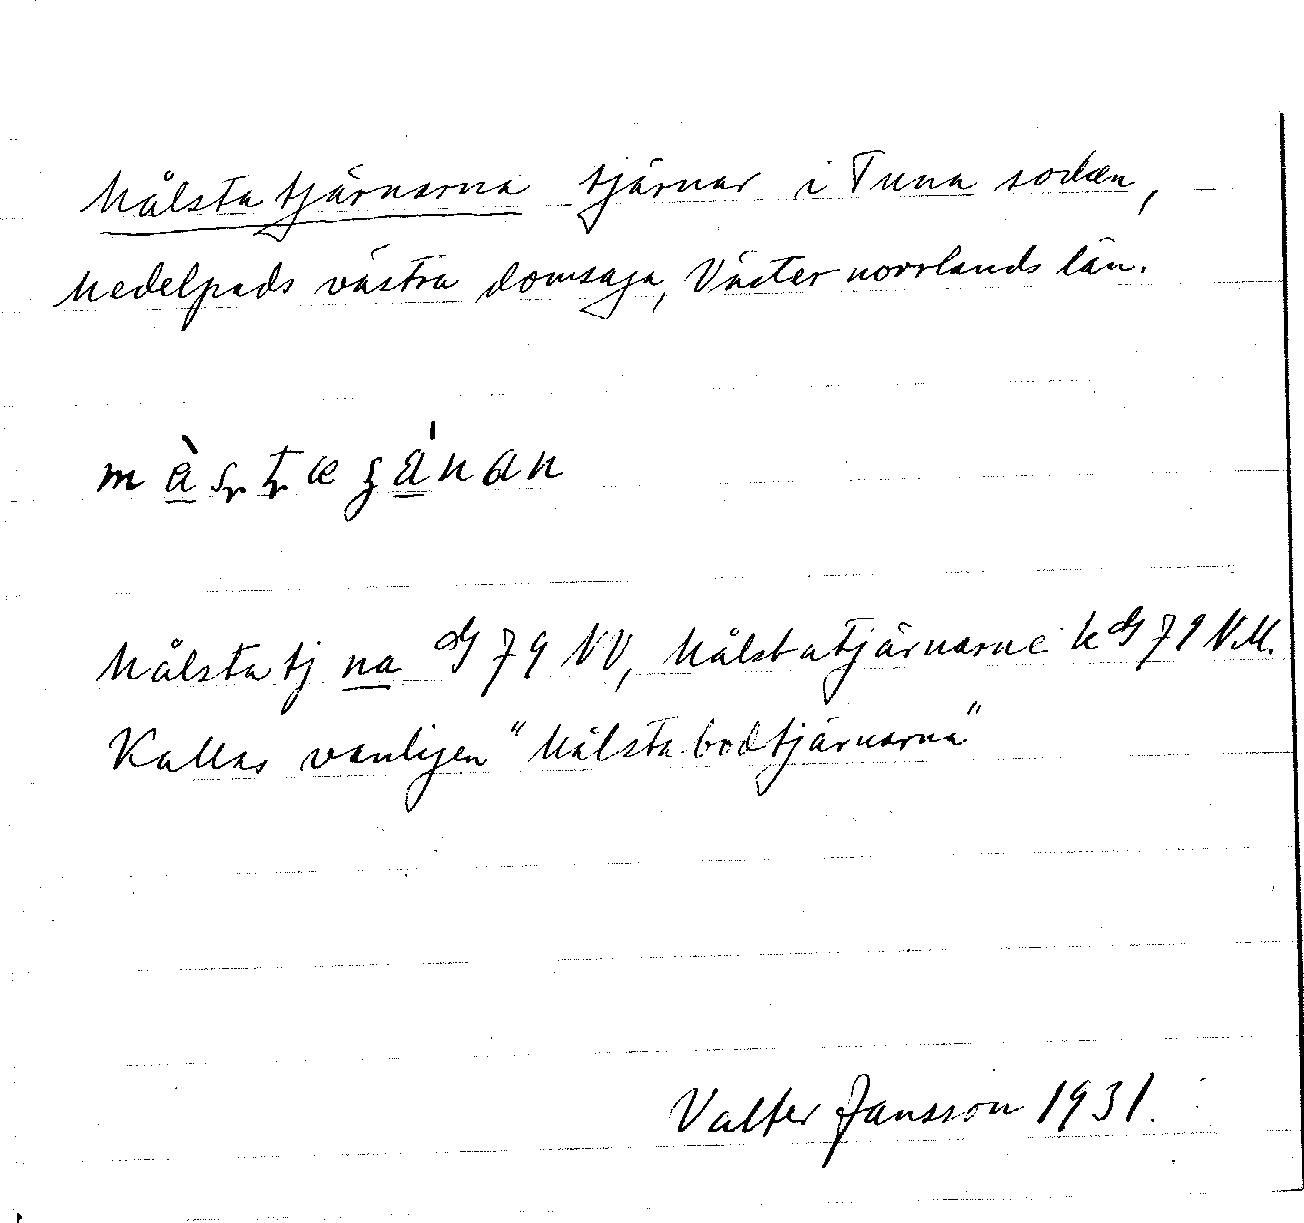 Målstatjärnarna tjärnar i Tuna socken,
Medelpads västra domsaga, Västernorrlands län.
Målstatj na G 79 NV, Målstatjärnarne k G 79 NM.
Kallas vanligen "Målstabodtjärnarna"
Valter Jansson 1931.